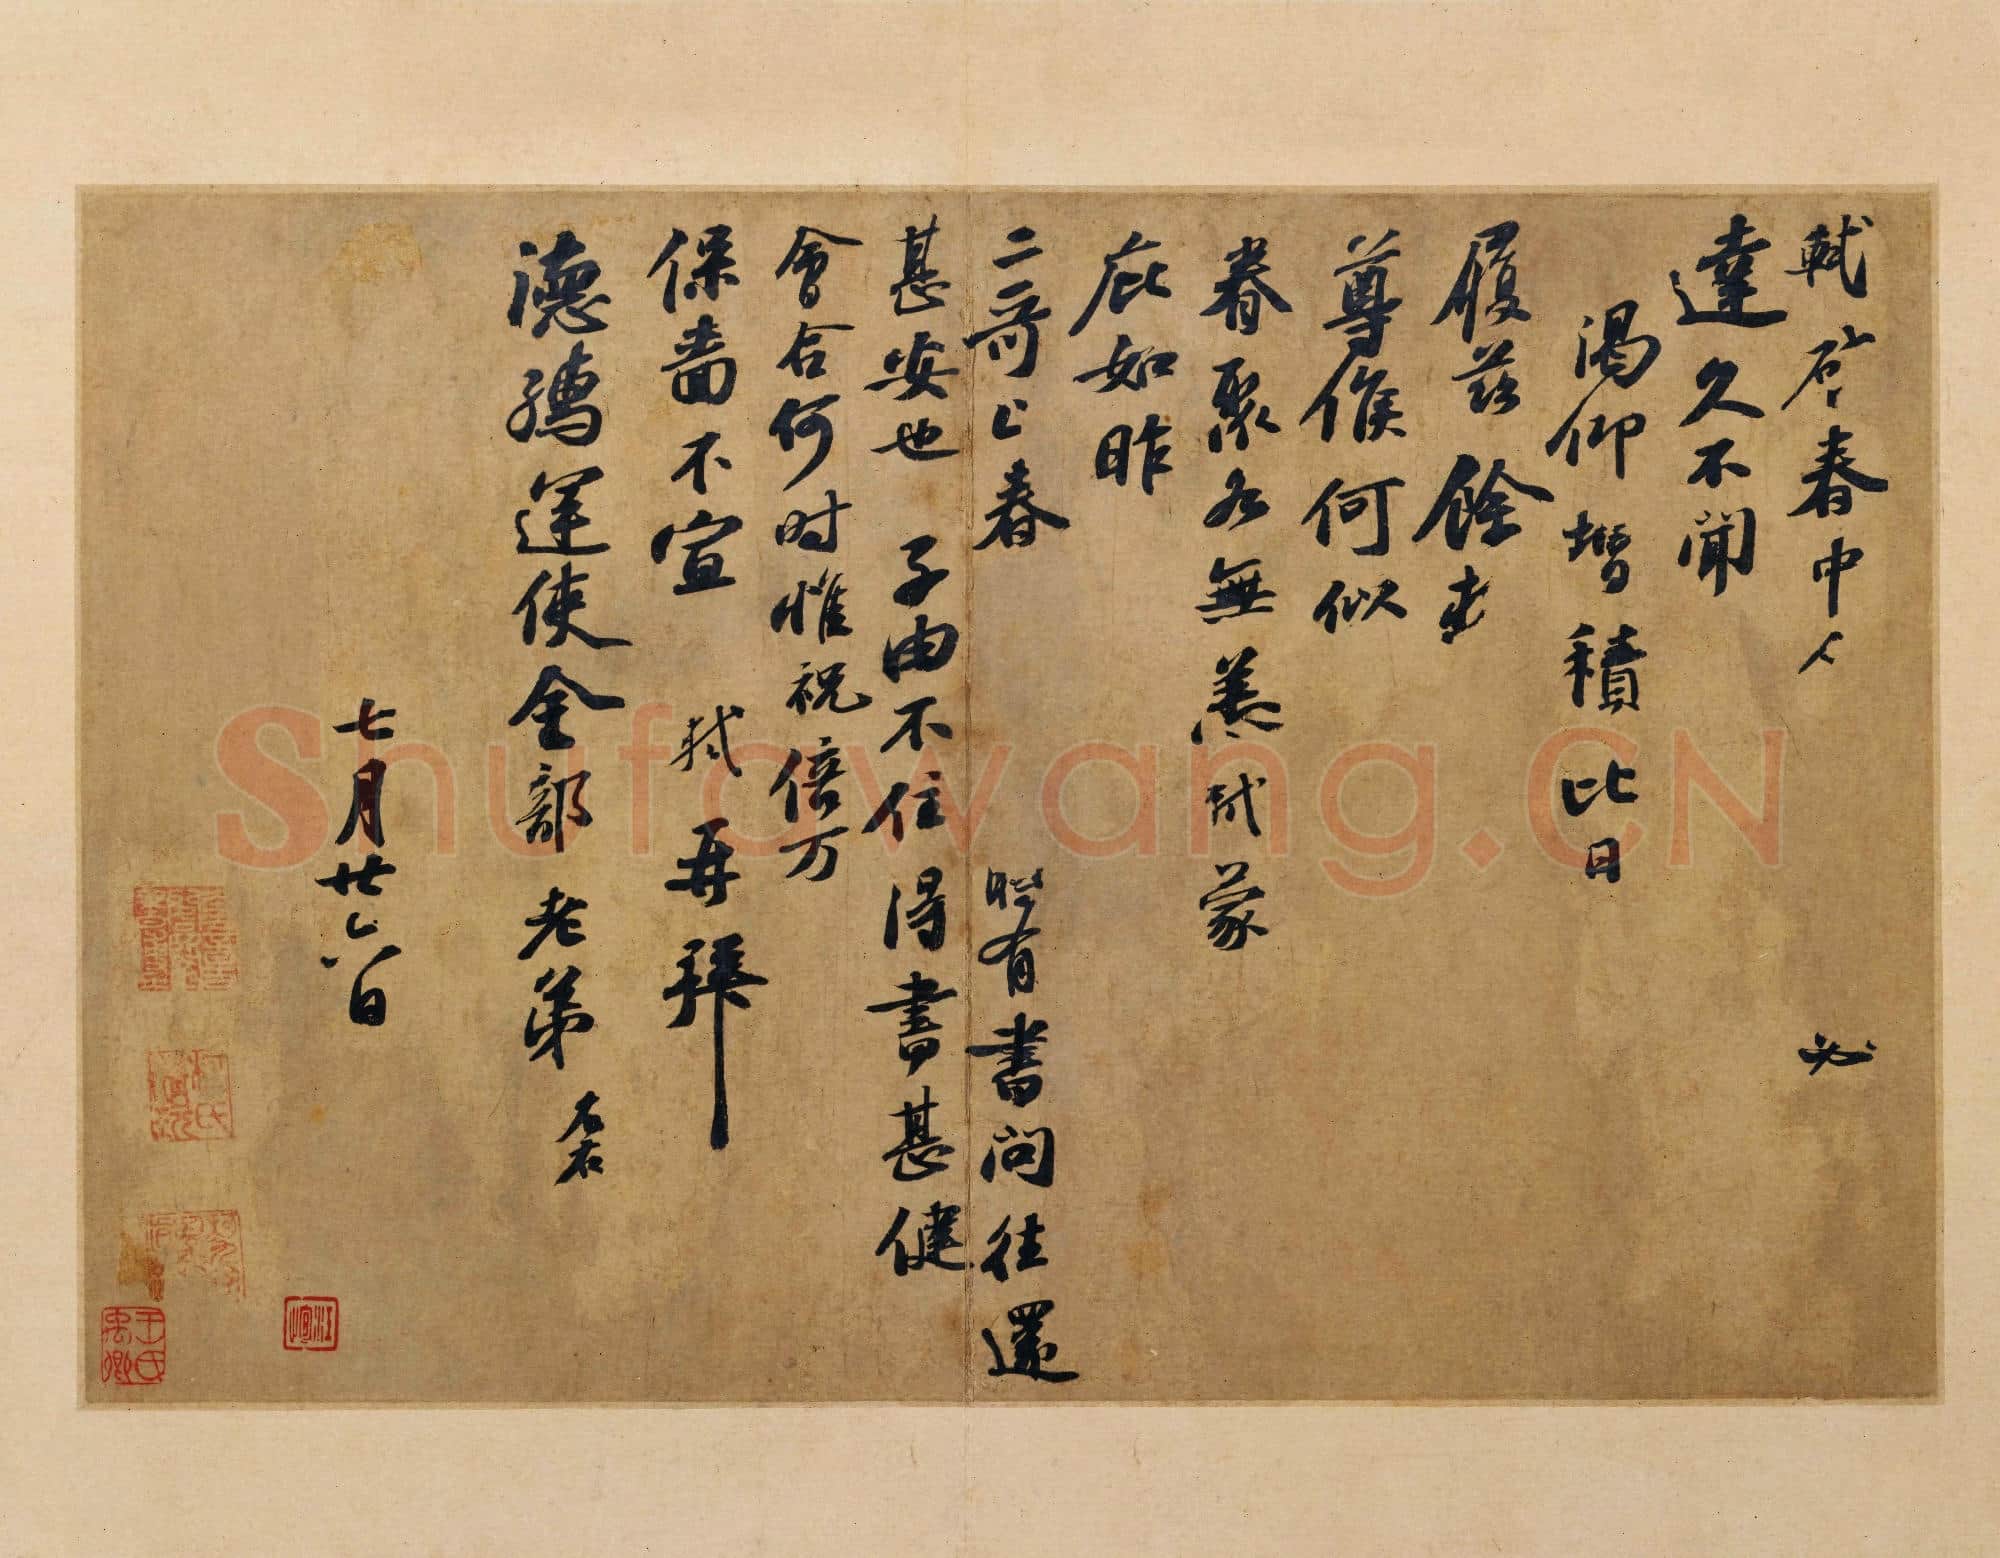 軾啓春中人必
達久不聞
渴仰增積比日
履茲餘
尊候何似
眷聚各無恙軾蒙
庇如昨
二哥上春時有書問往還
甚安也子由不住得書甚健
會合何時惟祝倍万
保嗇不宣軾再拜
德孺運使金部老弟
七月廿六日
王氏禹卿
Shufawang.CN